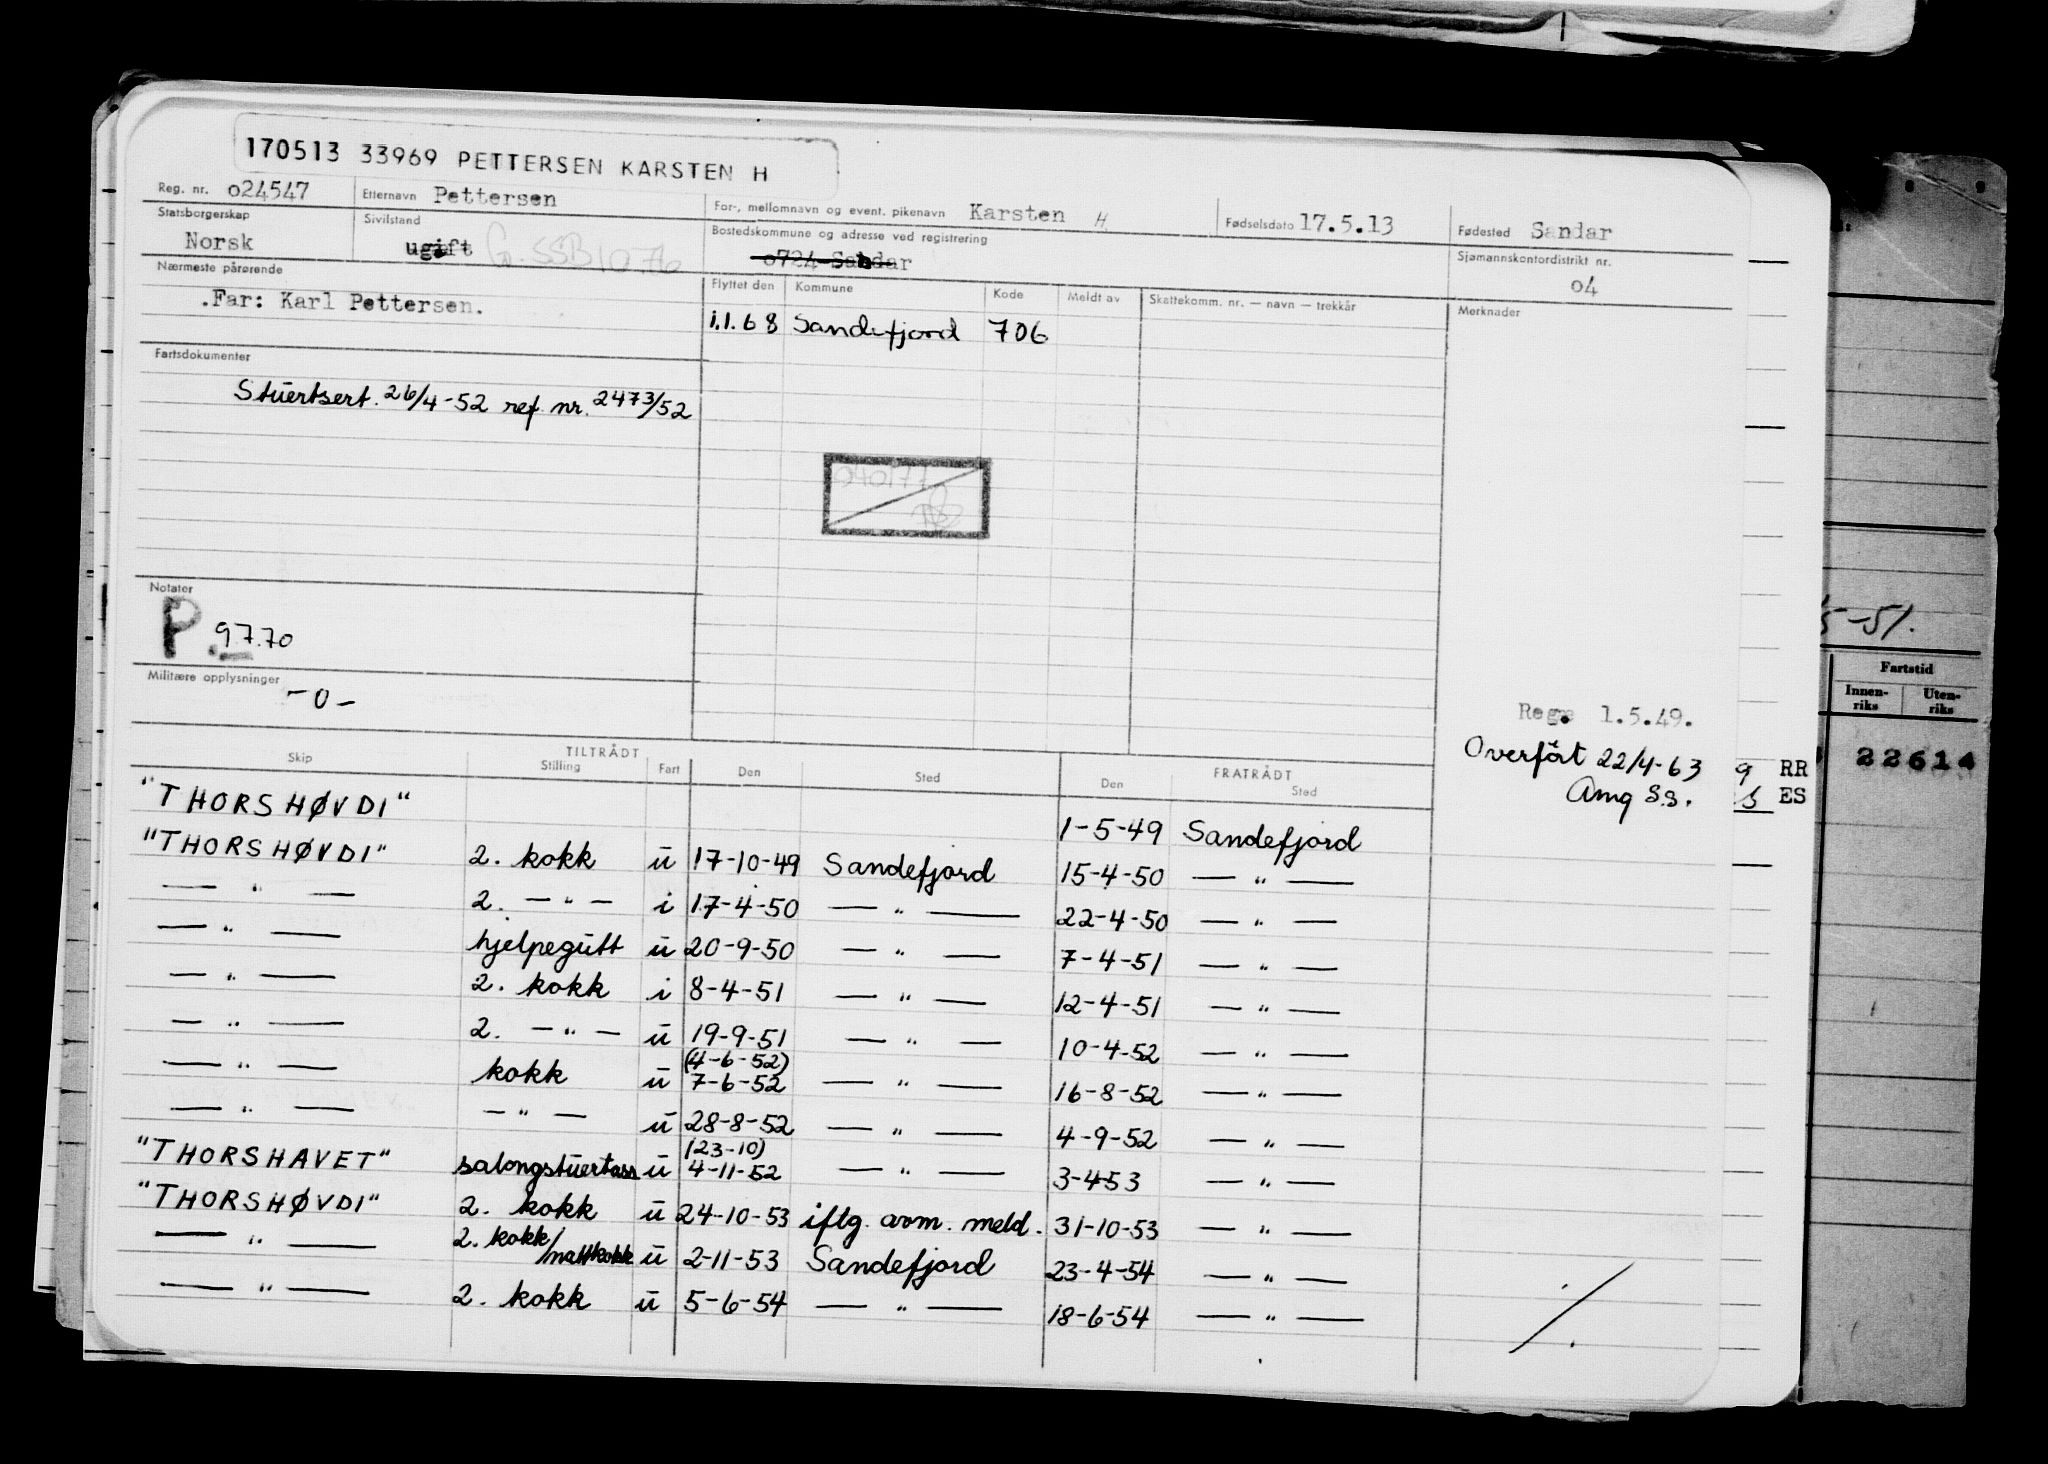 170513 33969 PETTERSEN KARSTEN H
Reg. nr. 024547 Etternavn Pettersen For-, mellomnavn og event. pikenavn Karsten H. Fødselsdato 17.5.13 Fødested Sandar
Statsborgerskap Norsk Sivilstand ugift G. SSB 10.76 Bostedskommune og adresse ved registrering 0724 Sandar Sjømannskontordistrikt nr. 04
Nærmeste pårørende
.Far: Karl Pettersen.
Flyttet den Kommune Kode Meldt av Skattekomm. nr. — navn — trekkår Merknader
1.1.68 Sandefjord 706
Fartsdokumenter
Stuertsert. 26/4-52 ref. nr. 2473/52
040177
Notater
P. 97.70
Militære opplysninger
-0-
Reg. 1.5.49.
Overført 22/4-63
Amg S.S.
TILTRÅDT FRATRÅDT
Skip Stilling Fart Den Sted Den Sted
"THORSHØVDI" 1-5-49 Sandefjord
"THORSHØVDI" 2. kokk u 17-10-49 Sandefjord 15-4-50 — " —
— " — 2. — " — i 17-4-50 — " — 22-4-50 — " —
— " — hjelpegutt u 20-9-50 — " — 7-4-51 — " —
— " — 2. kokk i 8-4-51 — " — 12-4-51 — " —
— " — 2. — " — u 19-9-51 — " — 10-4-52 — " —
(4-6-52)
— " — kokk u 7-6-52 — " — 16-8-52 — " —
— " — — " — u 28-8-52 — " — 4-9-52 — " —
(23-10)
"THORSHAVET" salongstuertass u 4-11-52 — " — 3-453 — " —
"THORSHØVDI" 2. kokk u 24-10-53 iflg. avm. meld. 31-10-53 — " —
— " — 2. kokk/nattkokk u 2-11-53 Sandefjord 23-4-54 — " —
— " — 2. kokk u 5-6-54 — " — 18-6-54 — " —
5-51.
Fartstid
Innen-riks Uten-riks
22614
9 RR
ES